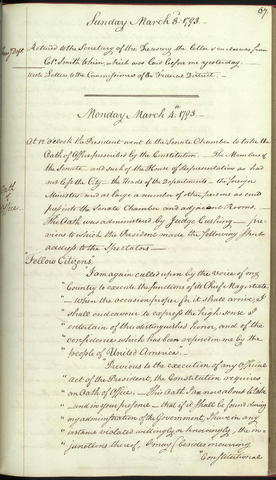 67
Sunday March 3. 1793.
Returned to the Secretary of the Treasury the letter & enclosures from
Colo. Smith which was laid before me yesterday.
Wrote Letters to the Commissioners of the Federal District.
Monday March 4th 1793.
Oath of
Office.
At 12 oClock the President went to the Senate Chamber to take the
Oath of Office presented by the Constitution — The Members of
the Senate, and such of the House of Representatives as had
not left the City — the Heads of the Departments — the foreign
Ministers — and as large a number of other persons as could
get into the Senate Chamber and adjacent Rooms.
The Oath was administered by Judge Cushing — pre-
vious to which the President made the following short
address to the Spectators —
"Fellow Citizens
I am again called upon by the voice of my
"Country to execute the functions of its Chief Magistrate
" — When the occasion proper for it shall arrive, I
" shall endeavour to express the high sense I
" entertain of this distinguished honor, and of the
" confidence which has been reposed in me by the
" people of United America. —
" Previous to the execution of any official
" act of the President, the Constitution requires
" an Oath of Office. — This Oath I am now about to take
" and in your presence — that if it shall be found during
" my administration of the Government, I have in any
" instance violated willingly or knowingly, the in-
" junctions thereof, I may (besides incurring
" Constitutional